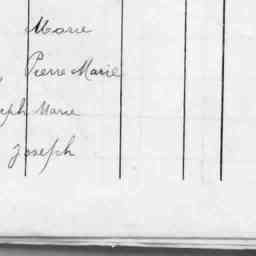 Marie
Pierre Marie
eph Marie
Joseph